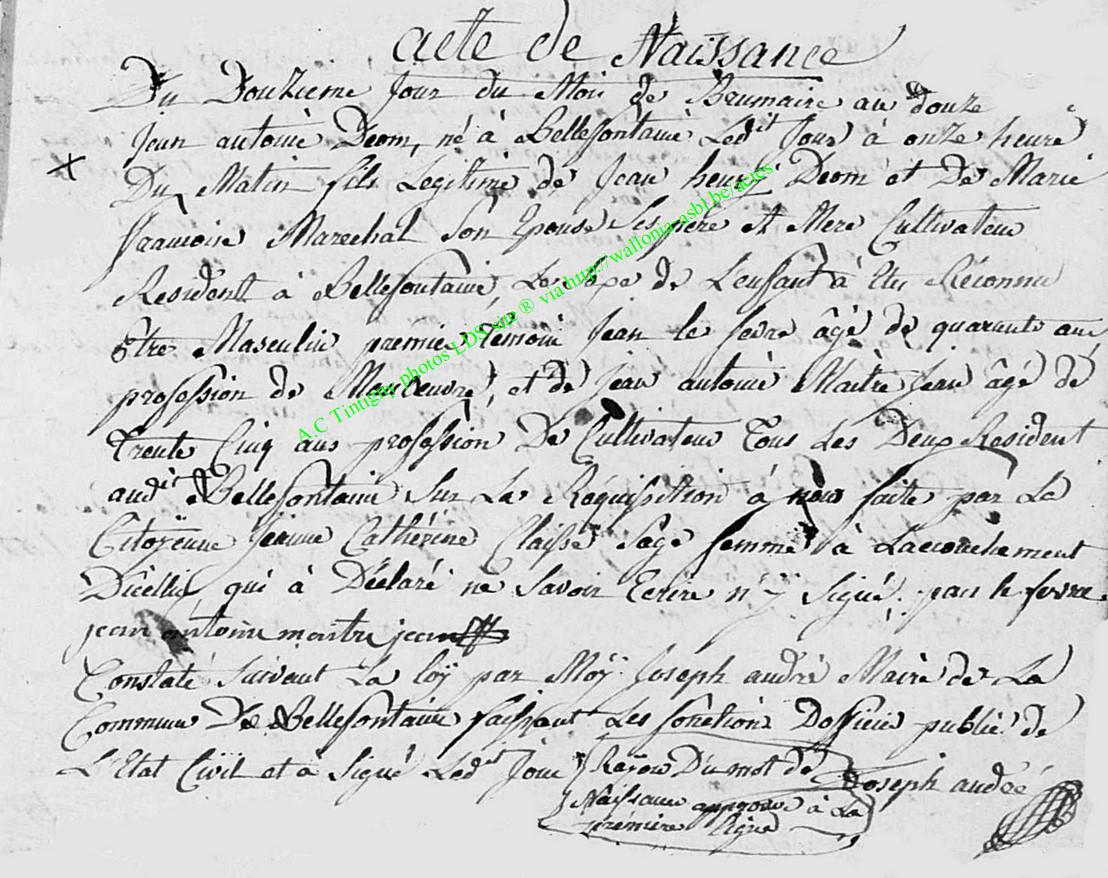 acte de Naissance
Du Douzieme Jour du Moi de Brumaire an douze
Jean antoine Deom, né à Bellefontaine Ledit Jour à onze heure
Du Matin fils Legitime de Jean henry Deom et De Marie
francoise Marechal son Epouse Ses pere et Mere Cultivateur
Resident à Bellefontaine, Le Sexe de L'enfant à Etu Réconnu
Etre Masculin premier témoin Jean le fevre âgé de quarante ans
profession de Manoeuvre, et de Jean antoine Maitre Jean âgé de
trente Cinq ans profession De Cultivateur Tous Les Deux Resident
audit Bellefontaine Sur La Requisition à nous faite par La
Citoÿenne Jeanne Cathérine Claisse Sage femme à Lacouchement
Dicelluy qui à Déclaré ne Savoir Ecrire n'y Signé. jean le fevre
jean antoine maitre jean
Constaté Suivant La loÿ par Moÿ Joseph andré Maire de La
Commune De Bellefontaine faissant Les fonctions Dofficier public de
L'Etat Civil et à Signé Ledit Jour Joseph andré
Raÿou D'umot de
Naissance approuve à La
premiere ligne
A.C Tintigny photos LDS sur ® via http://wallonia-asbl.be/actes